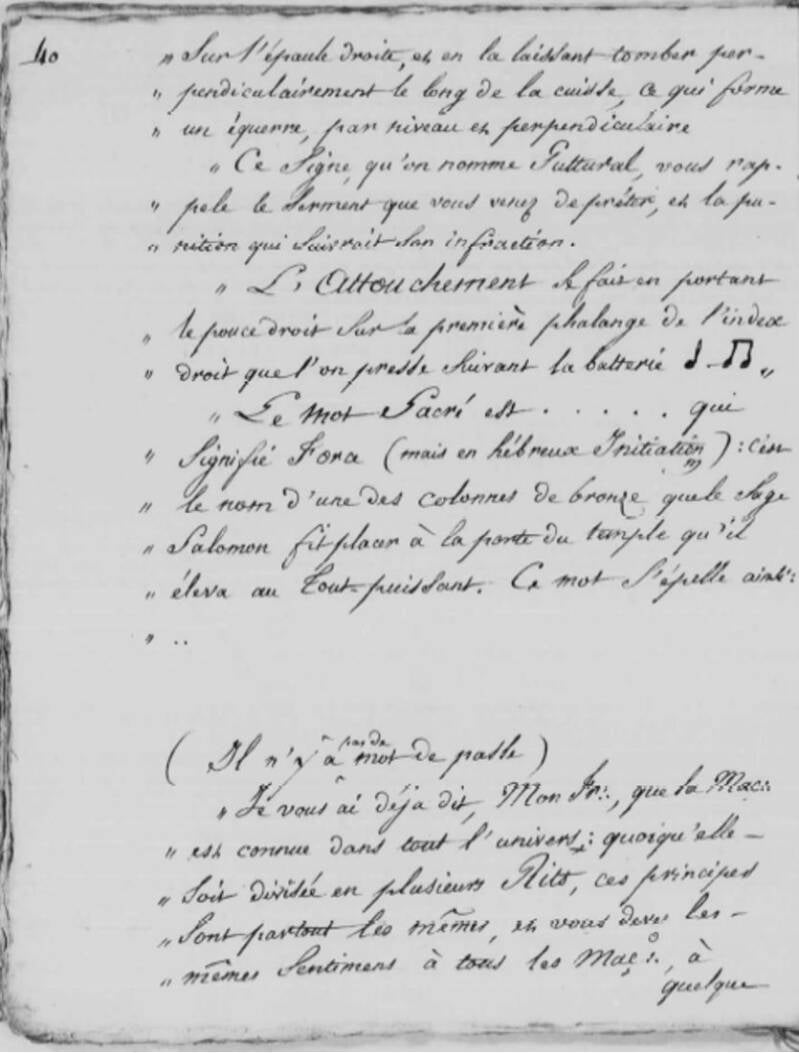 40
" Sur l'épaule droite, et en la laissant tomber per-
" pendiculairement le long de la cuisse, ce qui forme
" un équerre, par niveau et perpendiculaire
" Ce Signe, qu'on nomme Guttural, vous rap-
" pele le Serment que vous venez de préter, et la pu-
" nition qui Suivrait Son infraction.
" L'Attouchement Se fait en portant
" le pouce droit Sur la première phalange de l'index
" droit que l'on presse Suivant la batterie "
" Le Mot Sacré est . . . . . qui
" Signifié Force (mais en hébreux Initiation) : c'est
" le nom d'une des colonnes de bronze que le Sage
" Salomon fit placer à la porte du temple qu'il
" éleva au Tout-puissant. Ce mot S'épelle ainsi :
" ..
( Il n'y a pas de mot de passe )
" Je vous ai déja dit, Mon Fr∴, que la Mac∴
" est connue dans tout l'univers : quoiqu'elle-
" Soit divisée en plusieurs Rits, ces principes
" Sont partout les mêmes, et vous devez les-
" mêmes Sentimens à tous les Maç∴, à
quelque